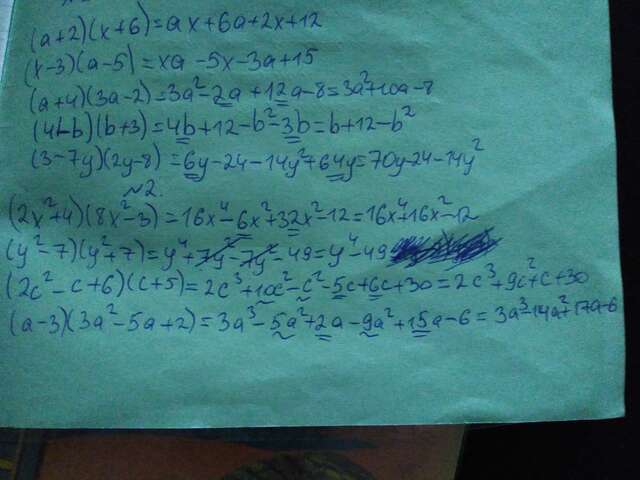 (a+2)(x+6)=ax+6a+2x+12
(x-3)(a-5)=xa-5x-3a+15
(a+4)(3a-2)=3a²-2a+12a-8=3a²+10a-8
(4-b)(b+3)=4b+12-b²-3b=b+12-b²
(3-7y)(2y-8)=6y-24-14y²+64y=70y-24-14y²
~2.
(2x²+4)(8x²-3)=16x⁴-6x²+32x²-12=16x⁴+16x²-12
(y²-7)(y²+7)=y⁴+7y-7y-49=y⁴-49
(2c²-c+6)(c+5)=2c³+10c²-c²-5c+6c+30=2c³+9c²+c+30
(a-3)(3a²-5a+2)=3a³-5a²+2a-9a²+15a-6=3a³-14a²+17a-6